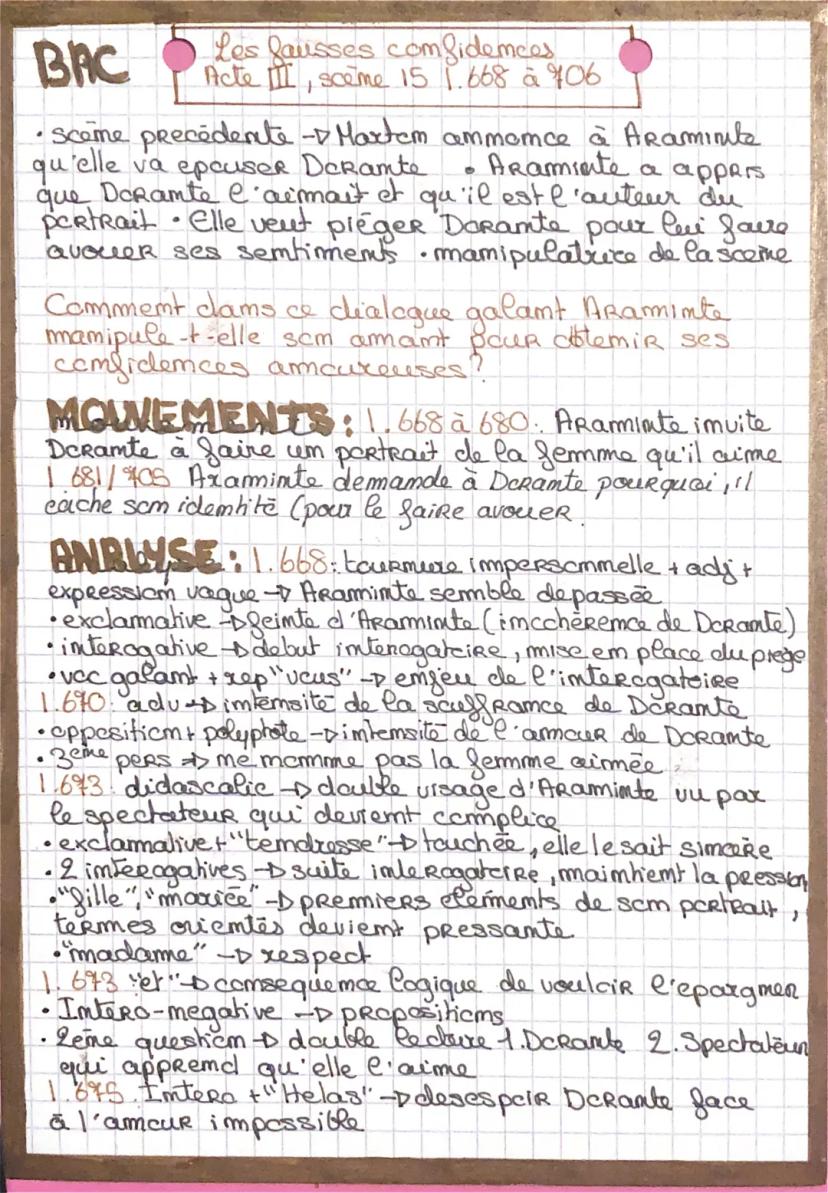 BAC
Les fausses confidences
Acte III, scène 15 l.668 à 706
• scène precédente → Marton ammomce à Araminte
qu'elle va epouser Dorante • Araminte a appris
que Dorante l'aimait et qu'il est l'auteur du
portrait • Elle veut piéger Dorante pour lui faire
avouer ses sentiments • manipulatrice de la scène
Comment dans ce dialogue galant Araminte
manipule-t-elle son amant pour obtenir ses
confidences amoureuses?
MOUVEMENTS: l.668 à 680: Araminte invite
Dorante à faire un portrait de la femme qu'il aime
l 681/705 Araminte demande à Dorante pourquoi, il
cache son identité (pour le faire avouer.
ANALYSE: l.668: tournure impersonnelle + adj +
expression vague → Araminte semble depassée
• exclamative → feinte d'Araminte (incohérence de Dorante)
• interogative → debut interogatoire, mise en place du piege
• voc galant + rep "vous" → enjeu de l'interogatoire
l.670: adv → intensité de la souffrance de Dorante
• opposition + polyptote → intensité de l'amour de Dorante
• 3eme pers → ne nomme pas la femme aimée
l.673: didascalie → double visage d'Araminte vu par
le spectateur qui devient complice
• exclamative + "tendresse" → touchée, elle le sait sincère
• 2 interogatives → suite interogatoire, maintient la pression
• "fille", "mariée" → premiers elements de son portrait,
termes orientés devient pressante
• "madame" → respect
l.673 "et" → consequence logique de vouloir l'epargner
• Intero-negative → propositions
• 2eme question → double lecture 1. Dorante 2. Spectateur
qui apprend qu'elle l'aime
l.675. Intero + "Helas" → desespoir Dorante face
à l'amour impossible